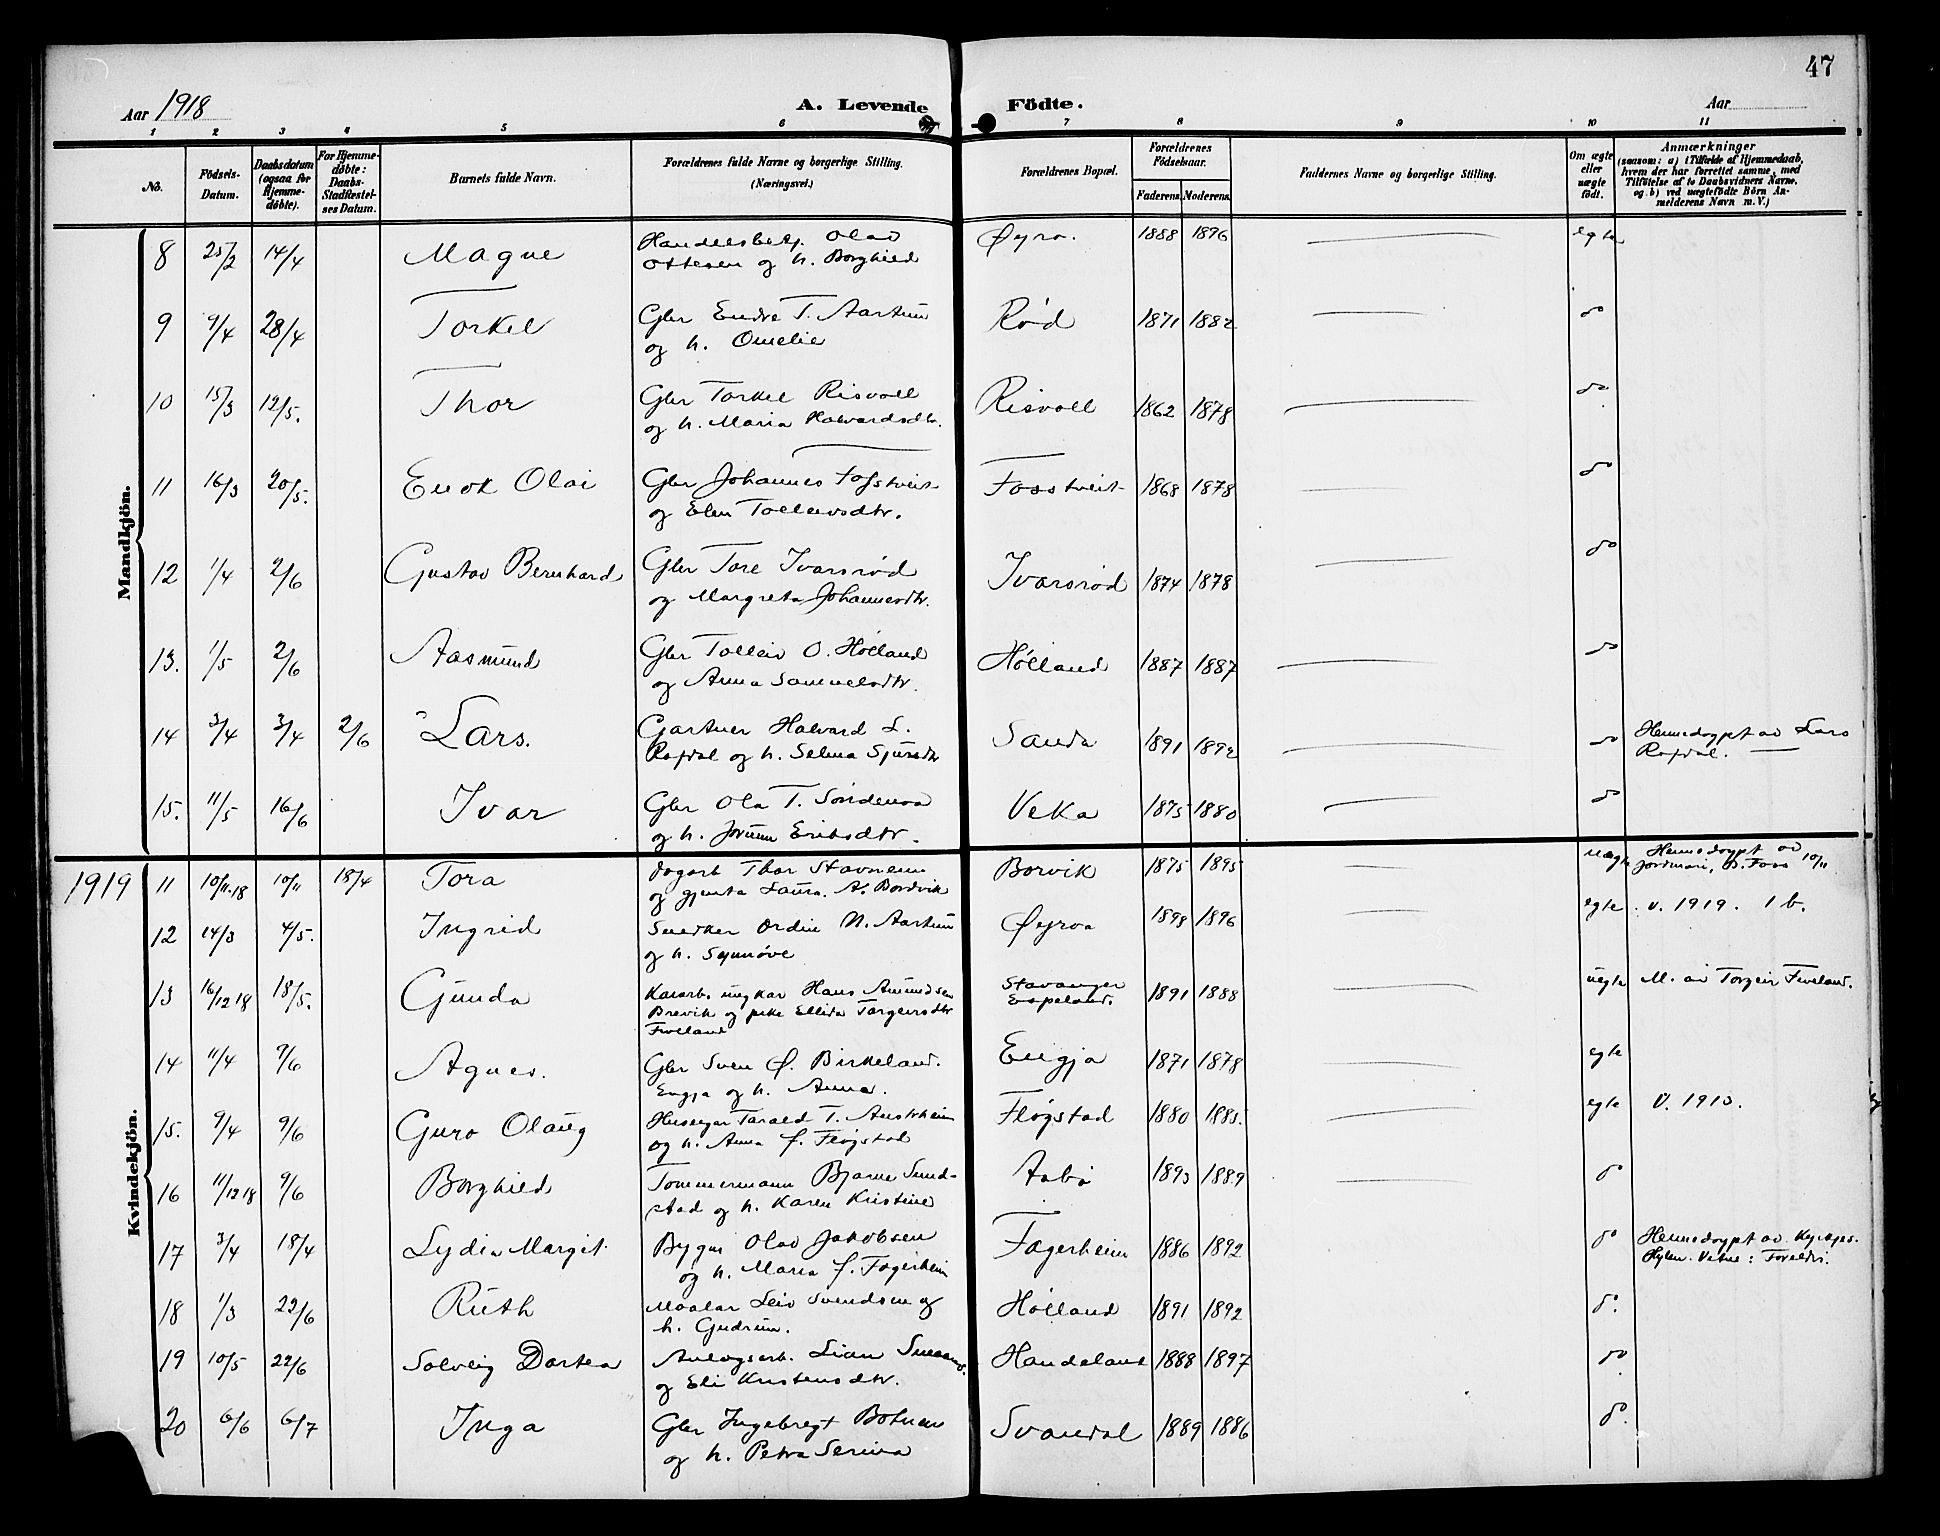 47
Aar 1918
A. Levende Födte.
Aar
1 2 3 4 5 6 7 8 9 10 11
No.
Födsels-Datum.
Daabsdatum (ogsaa for Hjemmedöbte).
For Hjemmedöbte: Daabs-Stadfæstelses Datum.
Barnets fulde Navn.
Forældrenes fulde Navne og borgerlige Stilling. (Næringsvei.)
Forældrenes Bopæl.
Forældrenes Födselsaar.
Faderens. Moderens.
Faddernes Navne og borgerlige Stilling.
Om ægte eller uægte födt.
Anmærkninger
(saasom: a) i Tilfælde af Hjemmedaab, hvem der har forrettet samme, med Tilföielse af to Daabsvidners Navne, og b) ved uægtefödte Börn Anmelderens Navn m. V.)
Mandkjön.
8 25/2 14/4 Magne Handelsbetj. Olav Øyra. 1888 1896 egte
Ottesen og h. Borghild
9 9/4 28/4 Torkel Gbr Endre T. Aartun Rød 1871 1882 do
og h. Omelie
10 15/3 12/5. Thor Gbr Torkel Risvoll Risvoll 1862 1878 do
og h. Maria Halvardsdtr.
11 16/3 20/5. Enok Olai Gbr Johannes Fosstveit Fosstveit 1868 1878 do
og Elen Tolleivsdtr.
12 1/4 2/6 Gustav Bernhard Gbr Tore Ivarsrød Ivarsrød 1874 1878 do
og Margreta Johannesdtr.
13. 1/5 2/6 Aasmund Gbr Tolleiv O. Hølland Hølland 1887 1887 do
og Anna Samuelsdtr.
14 3/4 3/4 2/6 Lars. Gartner Halvard L. Sauda 1891 1892 do Hemedøypt av Lars
Rafdal og h. Selma Sjursdtr Rafdal.
15. 11/5 16/6 Ivar Gbr Ola T. Søndenaa Veka 1875 1880 do
og h. Jorunn Eriksdtr.
Kvindekjön.
1919 11 10/11.18 10/11 18/4 Tora Fagarb Thor Stavnheim Borvik 1875 1895 uegte Hemedøypt av
og gjenta Laura A. Bordvik Jordmori, B. Foss 10/11
12 14/3 4/5. Ingrid Snedker Ordin N. Aartun Øyraa 1898 1896 egte v. 1919. 1 b.
og h. Synnøve
13 16/12 18 18/5. Gunda Kaiarb. ungkar Hans Amundsen Stavanger 1891 1888 uegte M. av Torgeir Fiveland.
Brevik og pike Ellida Torgeirsdtr Espeland.
Fiveland
14 11/4 9/6 Agnes. Gbr Sven Ø. Birkeland. Engja 1871 1878 egte
Engja og h. Anna.
15. 9/4 9/6 Guro Olaug Huseigar Tarald T. Austrheim Fløgstad 1880 1885. egte V. 1913.
og h. Anna f. Fløgstad
16 11/12 18 9/6 Borghild Tømmermann Bjarne Sund- Aabø 1893 1889 do
stad og h. Karen Kristine
17 3/4 18/4 Lydia Margit. Bygm Olav Jakobsen Fagerheim 1886 1892 do Hemedøypt av
og h. Maria f. Fagerheim Vitne: Foreldri.
18 1/3 22/6 Ruth Maalar Leiv Svendsen og Hølland 1891 1892 do.
h. Gudrun.
19 10/5 22/6 Solveig Dortea Anlegsarb. Lian Handeland 1888 1897 do
og Eli Kristensdtr.
20 6/6 6/7 Inga Gbr Ingebregt Botnen Svandal 1889 1886 do.
og h. Petra Serina